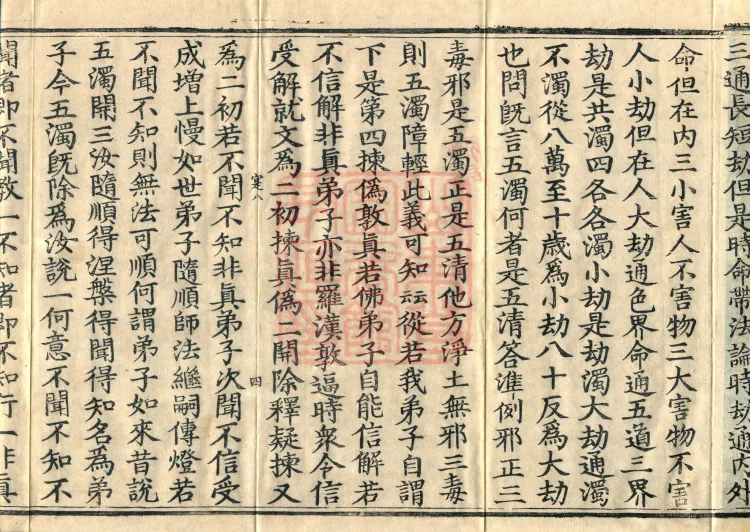 三通長短劫但是時命帶法論時劫通内外
命但在内三小害人不害物三大害物不害
人小劫但在人大劫通色界命通五道三界
劫是共濁四各各濁小劫是劫濁大劫通濁
不濁從八萬至十歲為小劫八十反為大劫
也問旣言五濁何者是五清荅準例邪正三
毒邪是五濁正是五清他方淨土無邪三毒
則五濁障輕此義可知云云從若我弟子自謂
下是第四揀偽敦真若佛弟子自能信解若
不信解非真弟子亦非羅漢敦逼時衆令信
受解就文為二初揀真偽二開除釋疑揀又
寔八
四
為二初若不聞不知非真弟子次聞不信受
成增上慢如世弟子隨順師法繼嗣傳燈若
不聞不知則無法可順何謂弟子如來昔說
五濁開三汝隨順得涅槃得聞得知名為弟
子今五濁旣除為汝說一何意不聞不知不
聞者即不聞教一不知者即不知行一非真